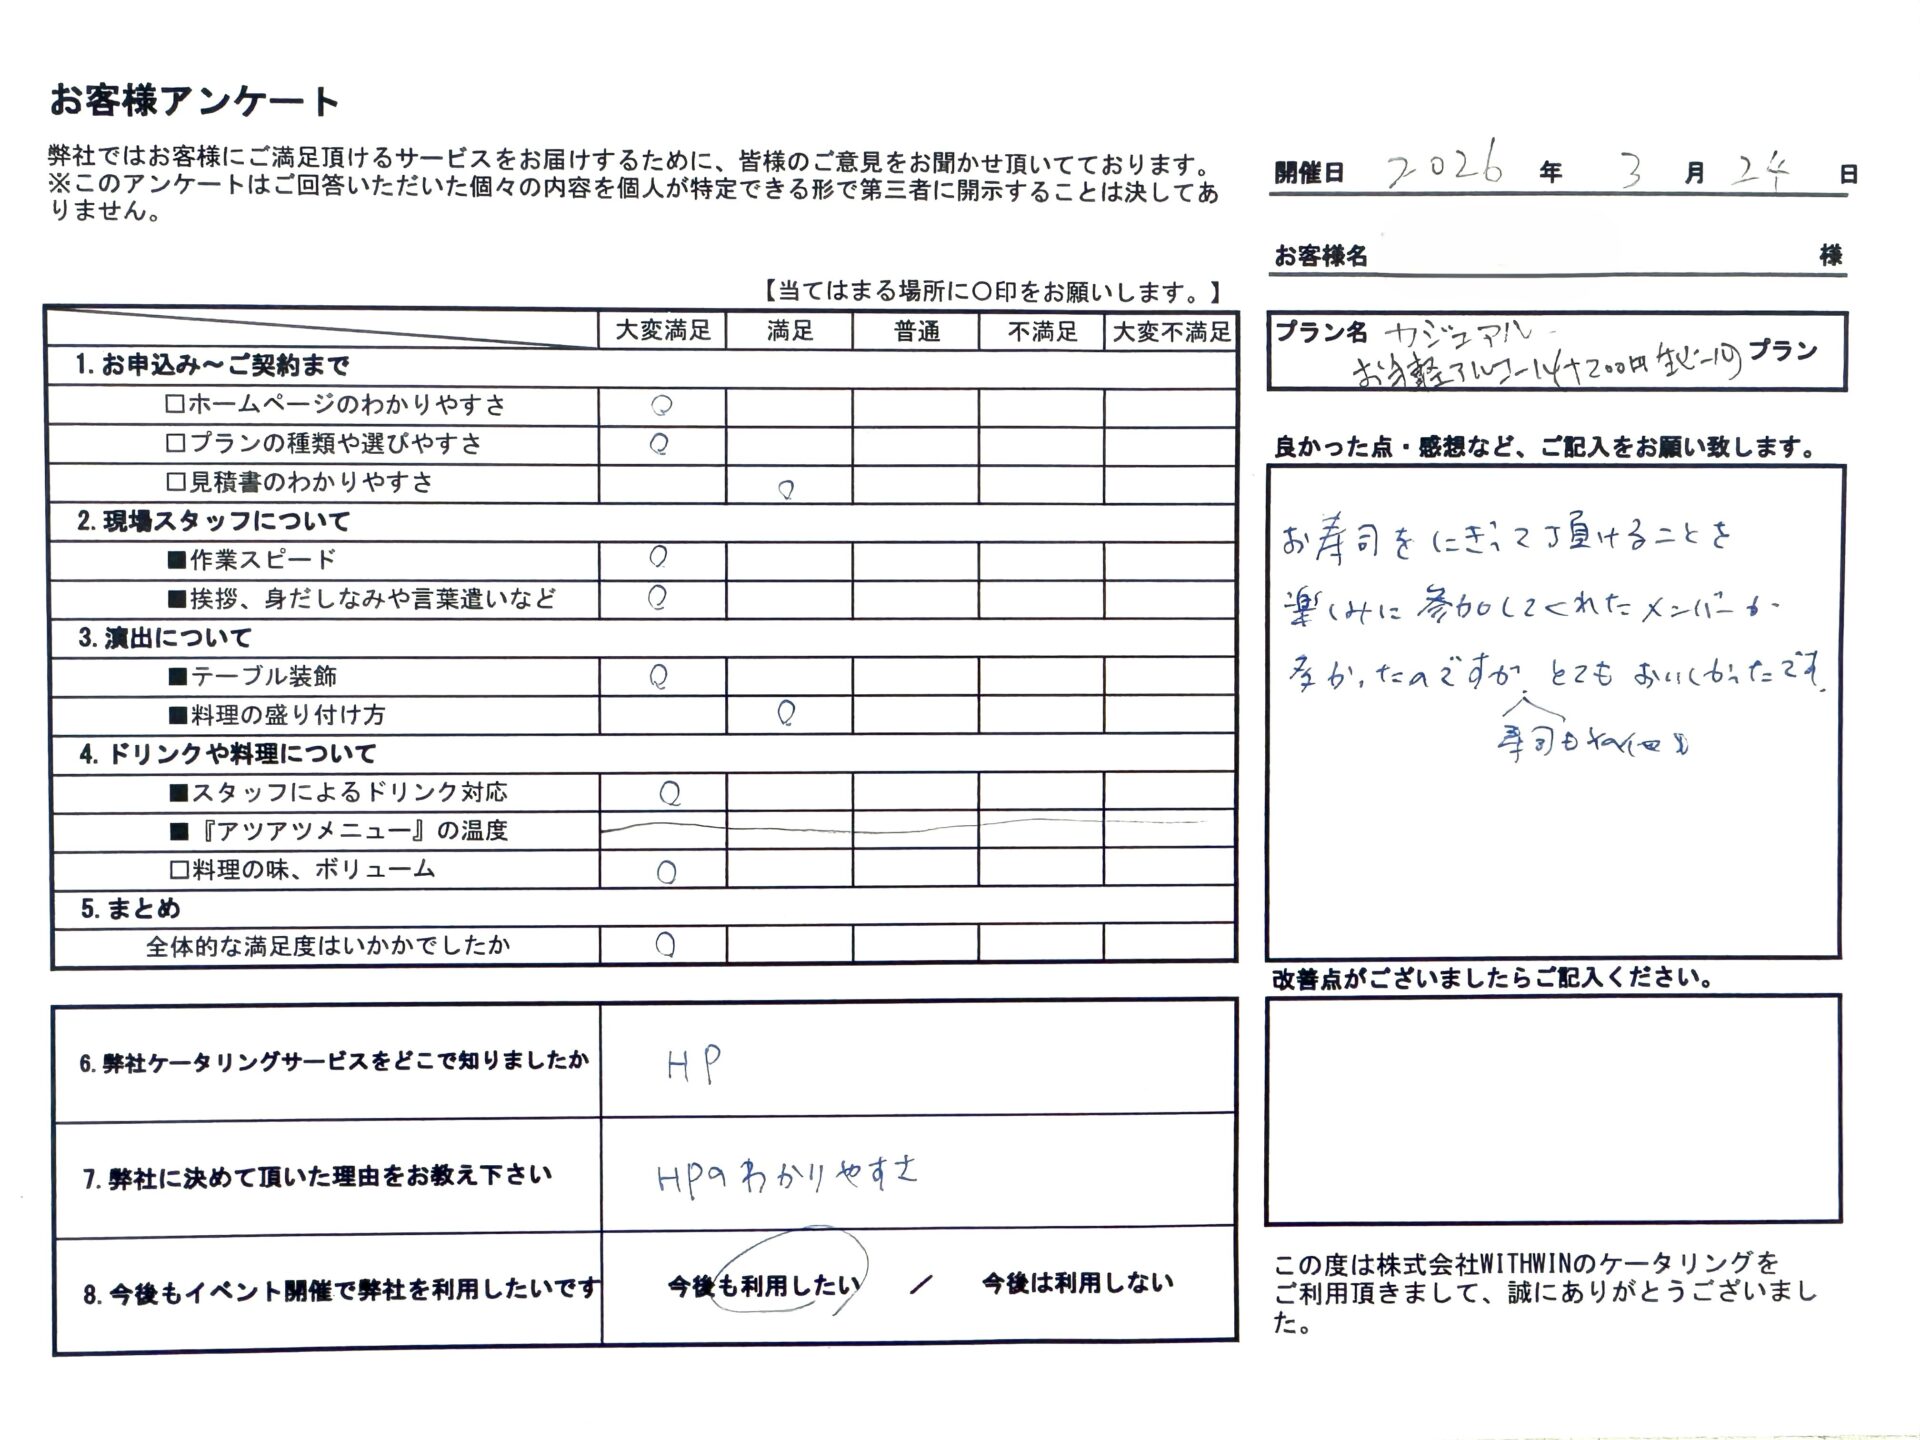 お客様アンケート
弊社ではお客様にご満足頂けるサービスをお届けするために、皆様のご意見をお聞かせ頂いてております。
※このアンケートはご回答いただいた個々の内容を個人が特定できる形で第三者に開示することは決してあ
りません。
開催日 2026 年 3 月 24 日
お客様名 様
【当てはまる場所に〇印をお願いします。】
大変満足 満足 普通 不満足 大変不満足
1.お申込み～ご契約まで
□ホームページのわかりやすさ
□プランの種類や選びやすさ
□見積書のわかりやすさ
2.現場スタッフについて
■作業スピード
■挨拶、身だしなみや言葉遣いなど
3.演出について
■テーブル装飾
■料理の盛り付け方
4.ドリンクや料理について
■スタッフによるドリンク対応
■『アツアツメニュー』の温度
□料理の味、ボリューム
5.まとめ
全体的な満足度はいかかでしたか
6.弊社ケータリングサービスをどこで知りましたか
HP
7.弊社に決めて頂いた理由をお教え下さい
HPのわかりやすさ
8.今後もイベント開催で弊社を利用したいです
今後も利用したい / 今後は利用しない
プラン名 カジュアル
お手軽アルコール+200円生ビール プラン
良かった点・感想など、ご記入をお願い致します。
お寿司をにぎって頂けることを
楽しみに参加してくれたメンバーが
多かったのですが、とてもおいしかったです。
寿司もその他も
改善点がございましたらご記入ください。
この度は株式会社WITHWINのケータリングを
ご利用頂きまして、誠にありがとうございまし
た。